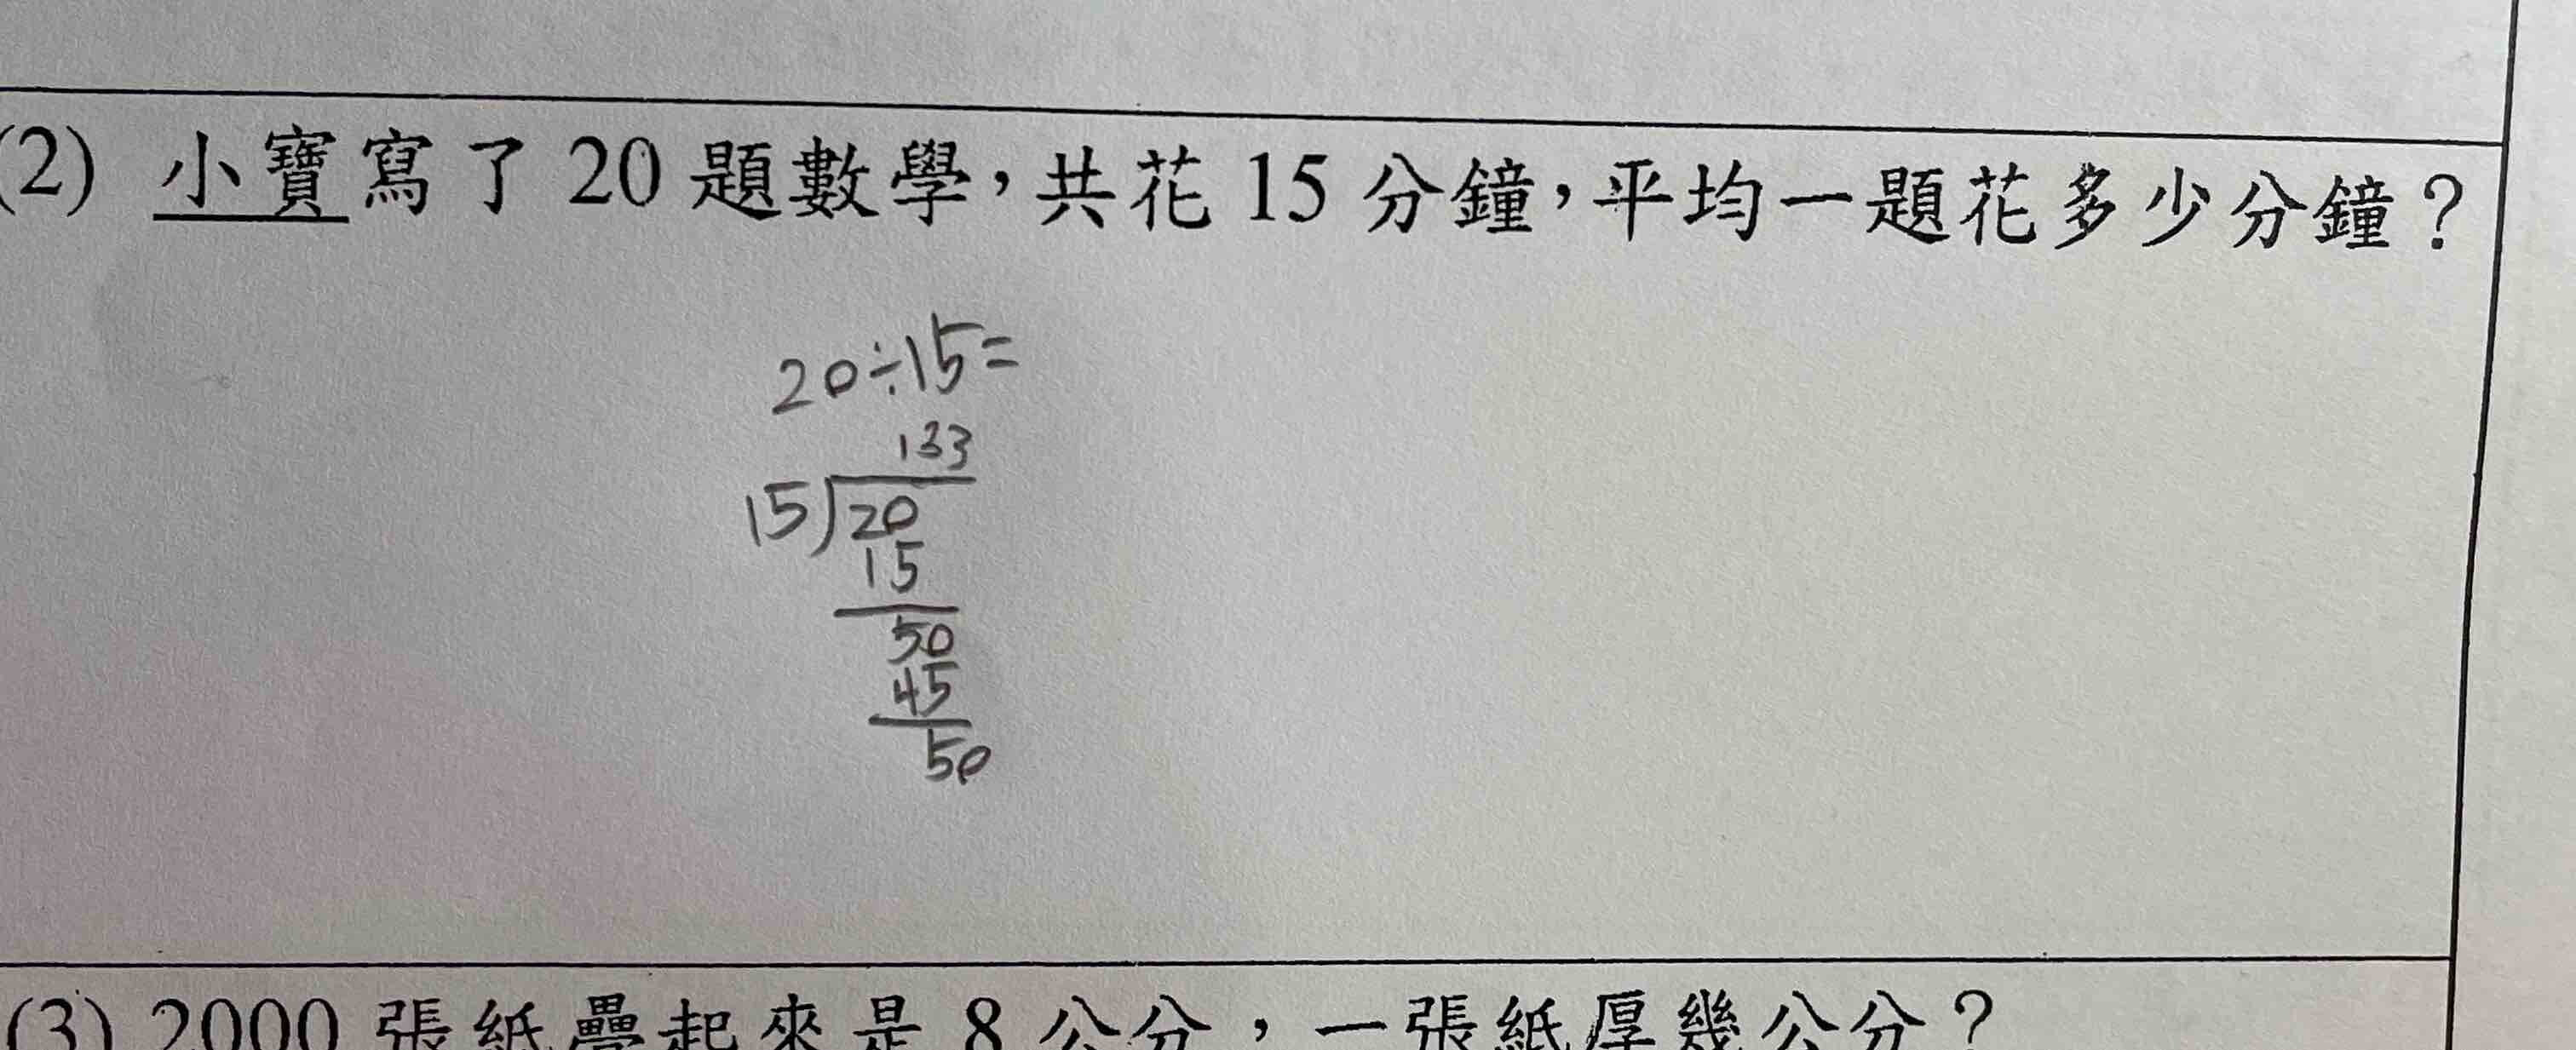 (2) 小寶寫了 20 題數學，共花 15 分鐘，平均一題花多少分鐘？
20÷15=
133
15)20
15
50
45
50
(3) 2000 張紙疊起來是 8 公分，一張紙厚幾公分？